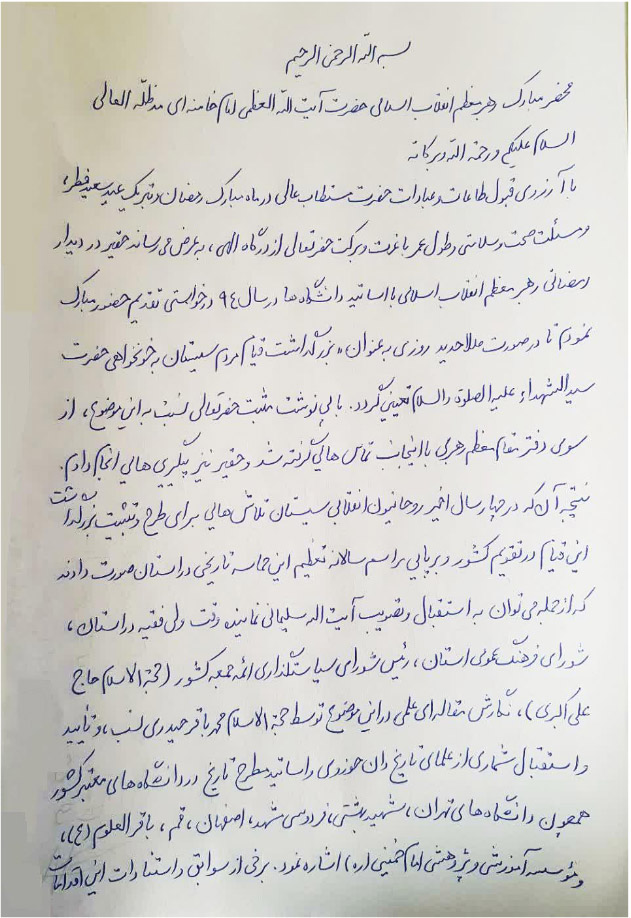 بسم الله الرحمن الرحیم
محضر مبارک رهبر معظم انقلاب اسلامی حضرت آیت الله العظمی امام خامنه ای مدظله العالی
السلام علیکم و رحمة الله و برکاته
با آرزوی قبول طاعات و عبادات حضرت مستطاب عالی در ماه مبارک رمضان و تبریک عید سعید فطر،
و مسئلت صحت و سلامتی و طول عمر با عزت و برکت حضرتعالی از درگاه الهی، به عرض می رساند حقیر در دیدار
رمضانی رهبر معظم انقلاب اسلامی با اساتید دانشگاه ها در سال ۹۴ درخواستی تقدیم حضور مبارک
نمودم تا در صورت صلاحدید روزی به عنوان «بزرگداشت قیام مردم سیستان به خونخواهی حضرت
سید الشهداء علیه الصلوة والسلام تعیین گردد. با پی نوشت مثبت حضرتعالی نسبت به این موضوع، از
سوی دفتر مقام معظم رهبری با اینجانب تماس هایی گرفته شد و حقیر نیز پیگیری هایی انجام دادم.
نتیجه آن که در چهار سال اخیر روحانیون انقلابی سیستان تلاش هایی برای طرح و تثبیت بزرگداشت
این قیام در تقویم کشور و برپایی مراسم سالانه تعظیم این حماسه تاریخی در استان صورت دادند
که از جمله می توان به استقبال و تصویب آیت الله سلیمانی نماینده وقت ولی فقیه در استان،
شورای فرهنگ عمومی استان، رئیس شورای سیاستگذاری ائمه جمعه کشور (حجة الاسلام حاج
علی اکبری)، نگارش مقاله ای علمی در این موضوع توسط حجة الاسلام محمد باقر حیدری نسب، و تأیید
و استقبال شماری از علمای تاریخ دان حوزوی و اساتید مطرح تاریخ در دانشگاه های معتبر کشور
همچون دانشگاه های تهران، شهید بهشتی، فردوسی مشهد، اصفهان، قم، باقر العلوم (ع)،
و مؤسسه آموزشی و پژوهشی امام خمینی (ره) اشاره نمود. برخی از سوابق و استنادات این اقدامات